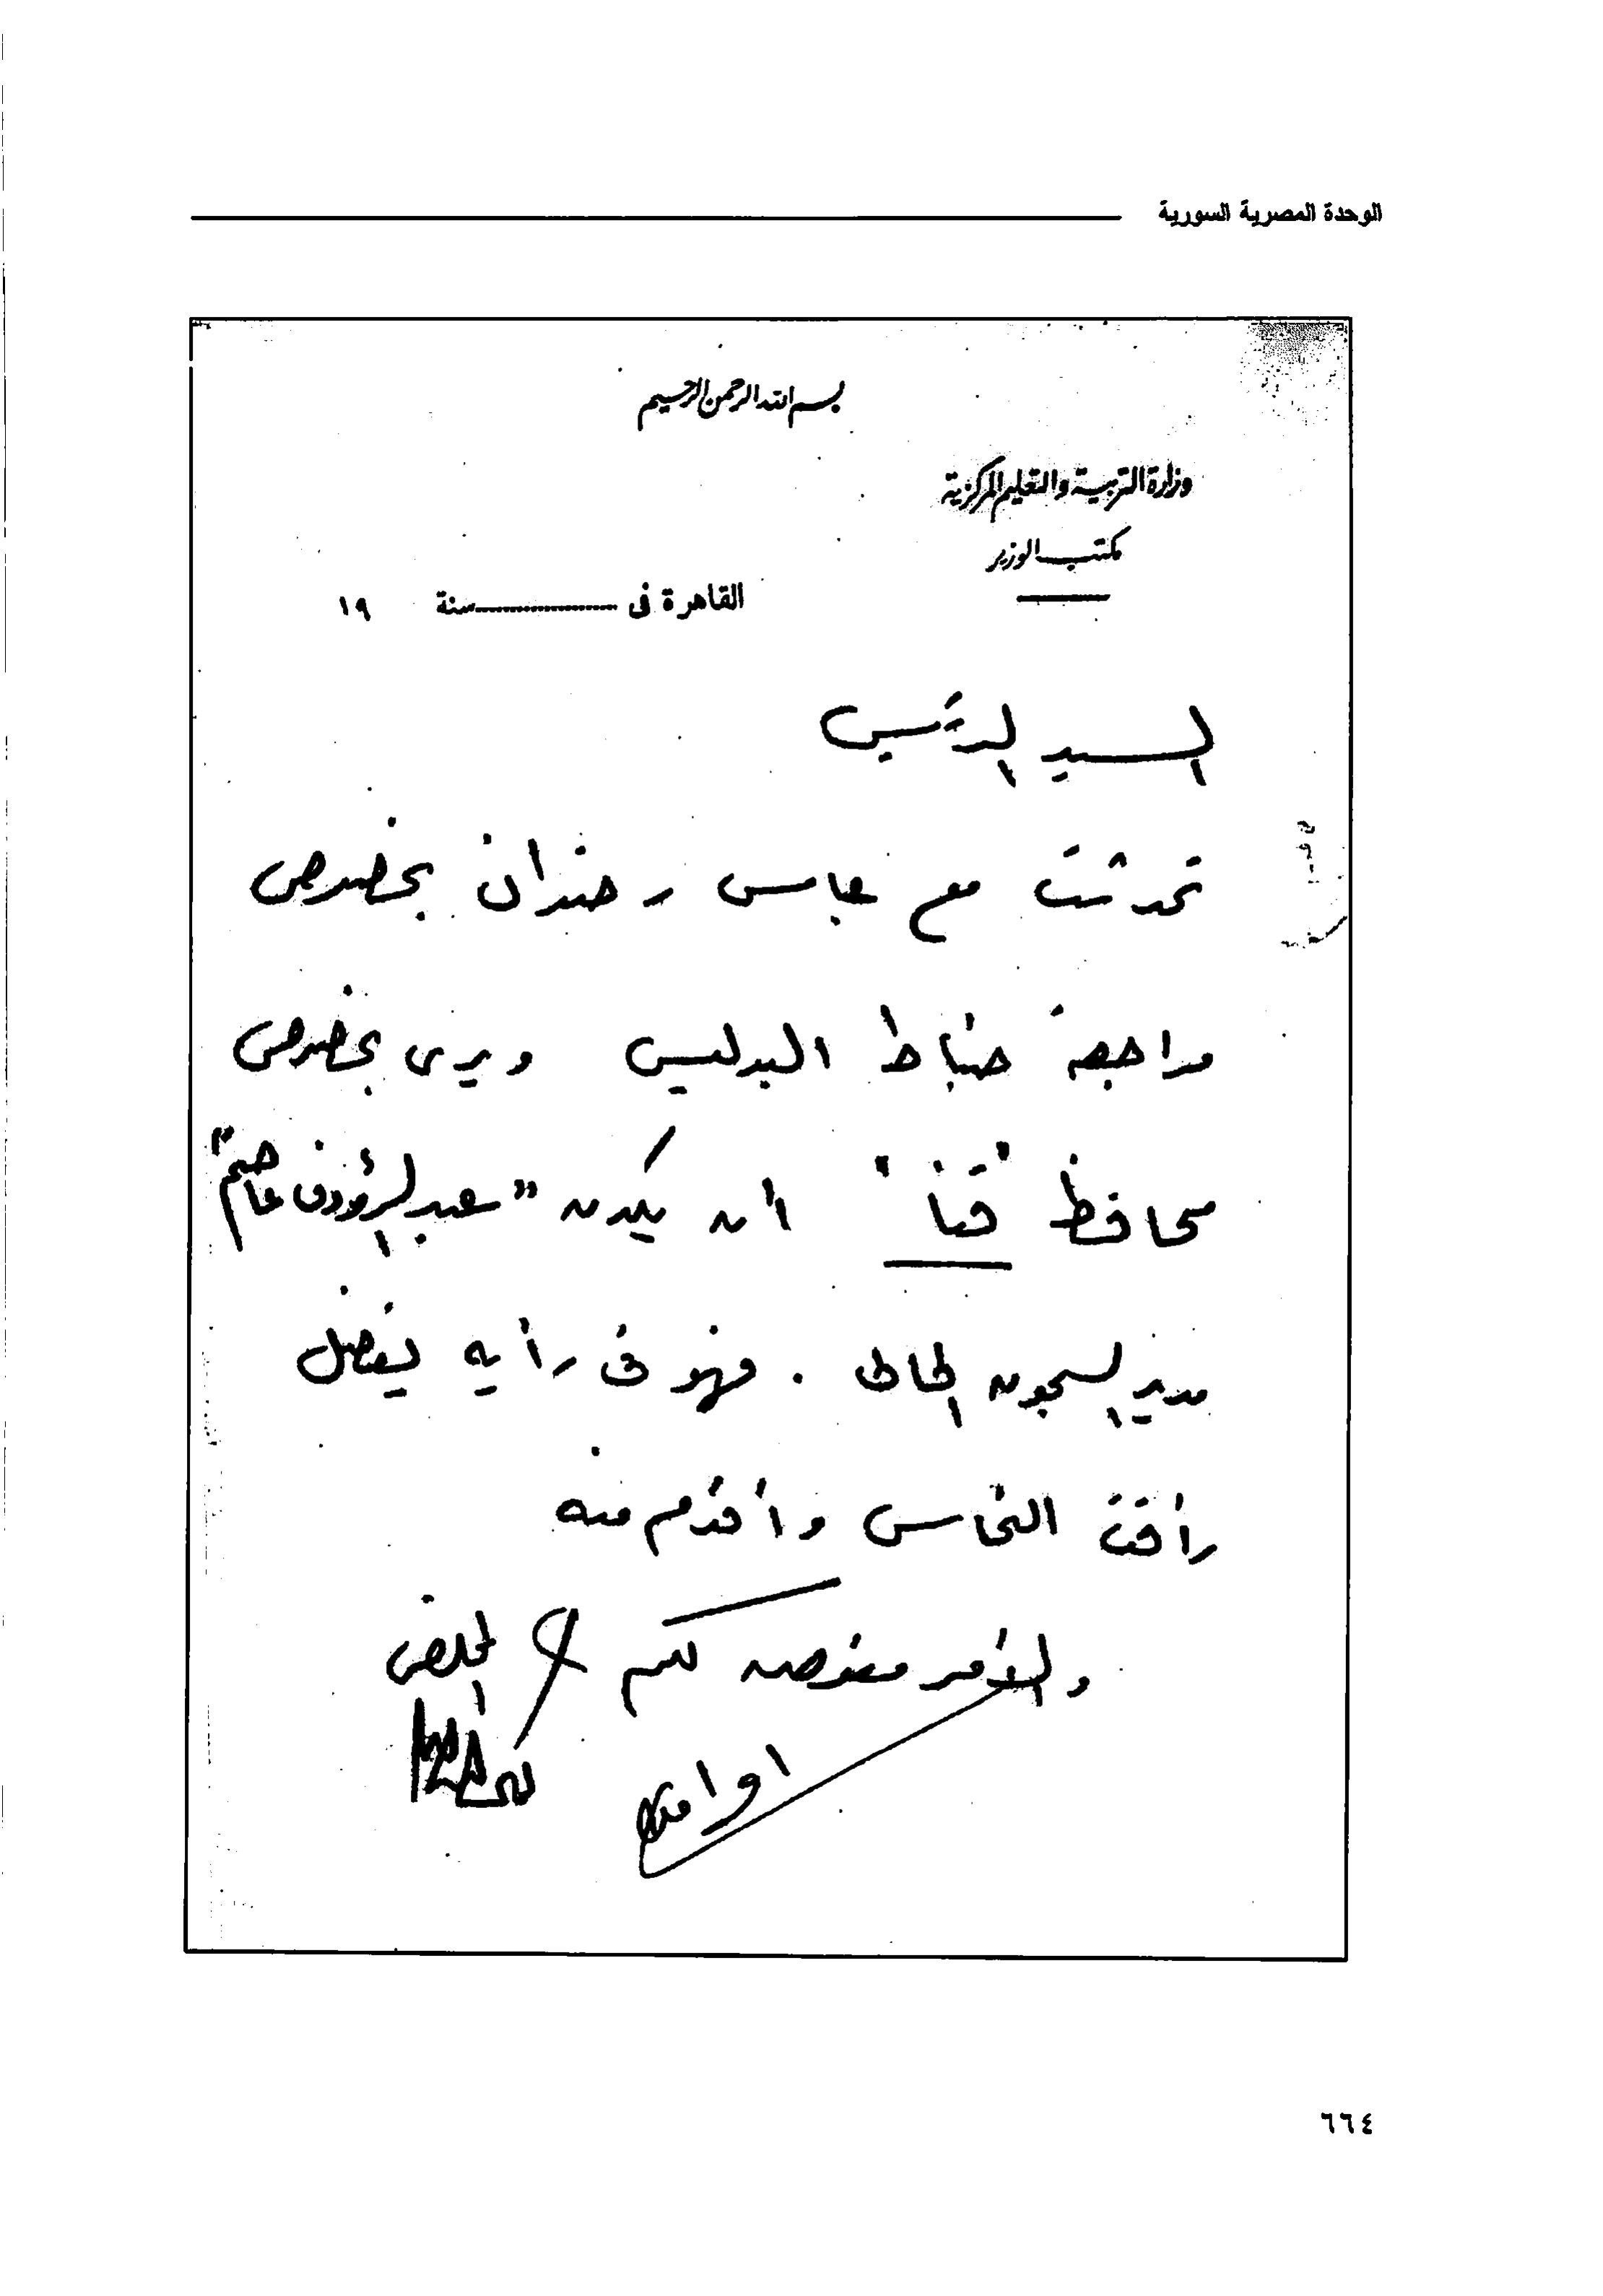 الوحدة المصرية السورية
بسم الله الرحمن الرحيم
وزارة التربية والتعليم المركزية
مكتب الوزير
القاهرة فى ........ سنة ١٩
السيد الرئيس
تحدثت مع عباس رضوان بخصوص
مراجعة ضباط البوليس ويرى بخصوص
محافظ "قنا" أن يكون "عبد الرؤوف عاصم"
مدير السجون الحالى . فهو فى رأيه يفضل
رأفت النحاس وأقدم منه
والأمر مفوض لكم المخلص
٦٦٤